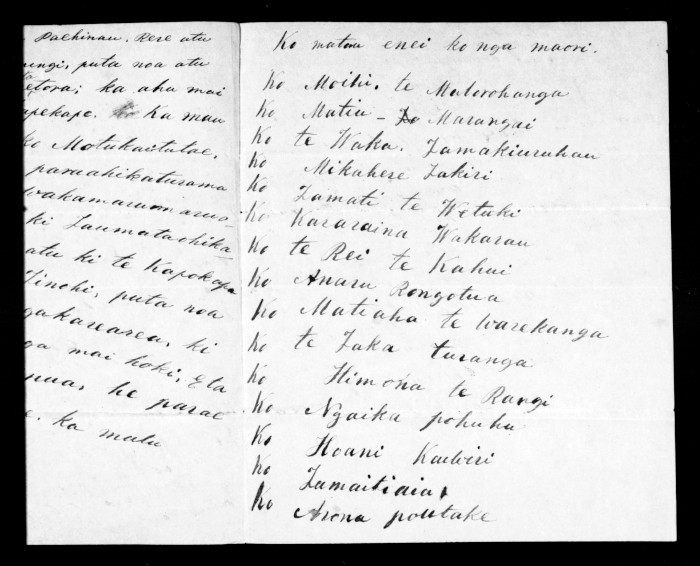 Paehinau. Rere atu
ungi, puta noa atu
etora; ka ahu mai
pekapo. Ka mau
ko Motukaitutae,
paraahikaturama
wakamarumaru-
ki Taumataohika-
atu ki te Kapokapo
Tinohi, puta noa
gakarearea, ki
ga mai hoki, E ta
pua, he parae
e. ka mutu
Ko matou enei ko nga maori.
Ko Moihi. te Matorohanga
Ko Matiu - Marangai
Ko te Waka. Tamakiuruhau
Ko Mikahere Takiri
Ko Tamati te Wetuki
Ko Kararaina Wakarau
Ko te Rei te Kahui
Ko Anaru Rongotua
Ko Matiaha te Warekanga
Ko te Taka turanga
Ko Himona te Rangi
Ko Ngaika pohuhu
Ko Hoani Kawiri
Ko Tamaitiaia
Ko Arona poutake